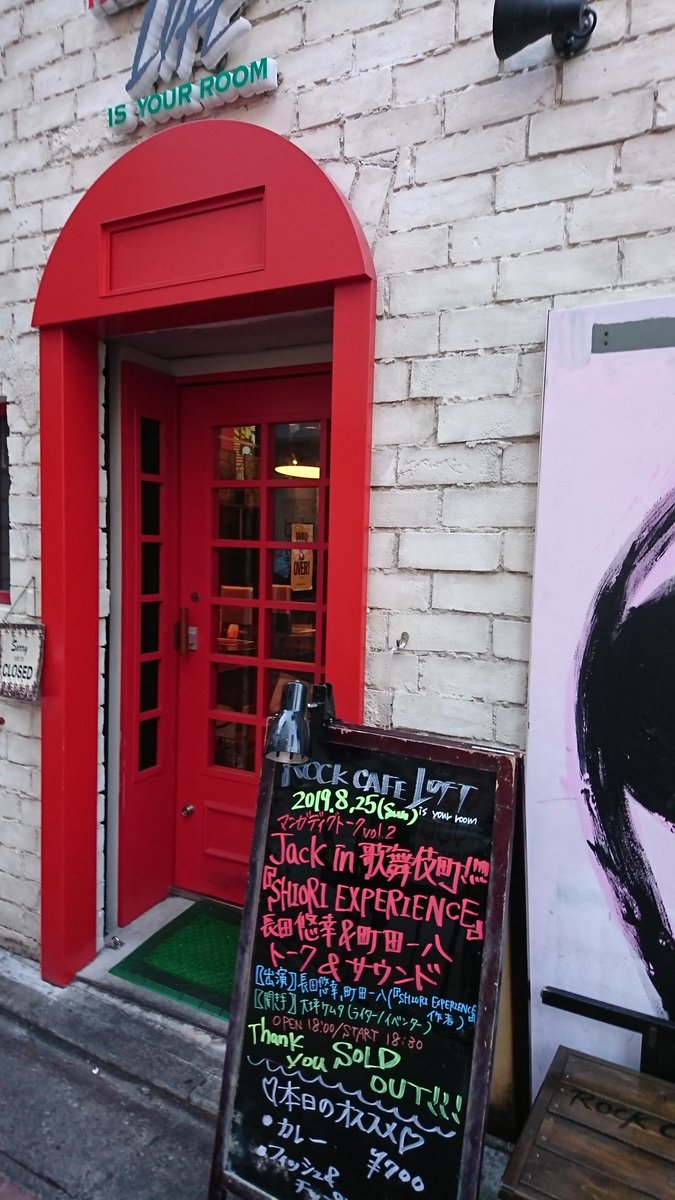 LOFT
IS YOUR ROOM
WAR
IS
OVER!
Sorry
CLOSED
ROCK CAFE LOFT
2019.8.25(Sun) is your room
マンガディグトークvol.2
Jack in 歌舞伎町!!!!
『SHIORI EXPERIENCE』
長田悠幸&町田一八
トーク&サウンド
【出演】長田悠幸、町田一八(『SHIORI EXPERIENCE』
作者)
【聞き手】大坪ケムタ(ライター/イベンター)
OPEN 18:00/START 18:30
Thank
you SOLD
OUT!!!
♡本日のオススメ♡
•カレー ¥700
•フィッシュ&
ROCK C